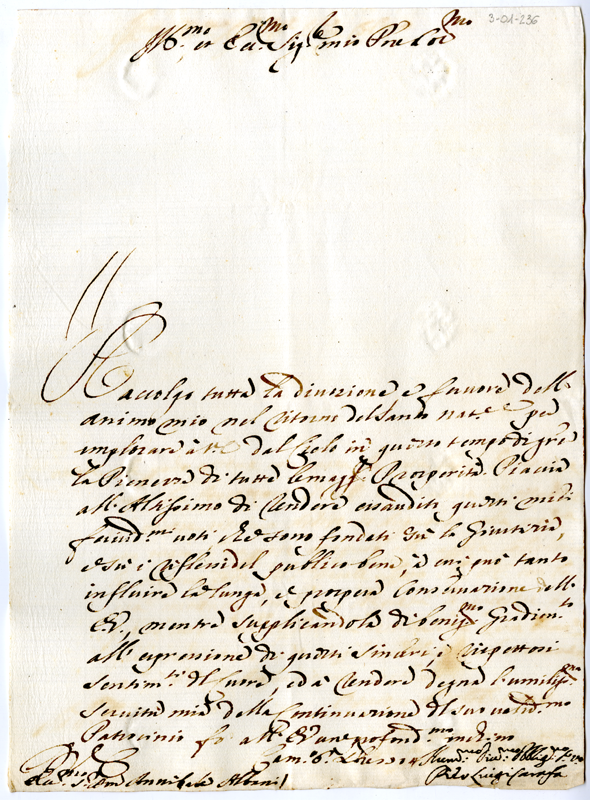 3-01-236
Ill.mo et Ecc.mo Sig.re mio Pron Col.mo
Raccolgo tutta la divozione e fervore dell'
animo mio nel ritorno del Santo Nat.e per
implorare à V.E. dal Cielo in questo tempo di gre
la Pienezza di tutte le mag.ri Prosperità. Piaccia
all'Altissimo di rendere essauditi questi miei
fervid.mi voti che sono fondati sù la Giustizia,
e sù i riflessi del publico bene, à cui può tanto
influire la lunga, e prospera Conservazione dell'
E.V., mentre supplicandola di benig.mo Gradim.to
all'espressione di questi sinceri, e rispettosi
sentim.ti del cuore, ed à rendere degna l'umiliss.ma
servitù mia della Continuazione del suo valid.mo
Patrocinio fò all'E.V. une profond.mo inchino
Xbre 1714
D. Annibale Albani